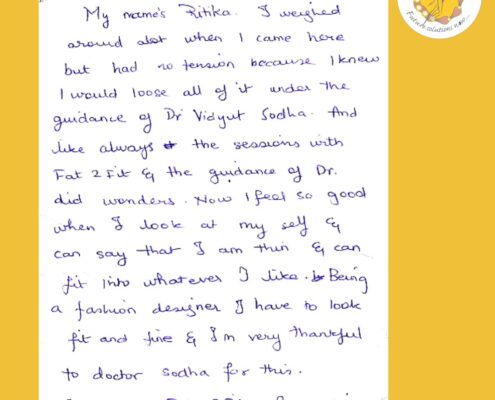 Future solutions now...
My name's Ritika. I weighed
around alot when I came here
but had no tension because I knew
I would loose all of it under the
guidance of Dr Vidyut Sodha. And
like always the sessions with
Fat 2 Fit & the guidance of Dr.
did wonders. Now I feel so good
when I look at my self &
can say that I am thin & can
fit into whatever I like. Being
a fashion designer I have to look
fit and fine & I'm very thankful
to doctor Sodha for this.